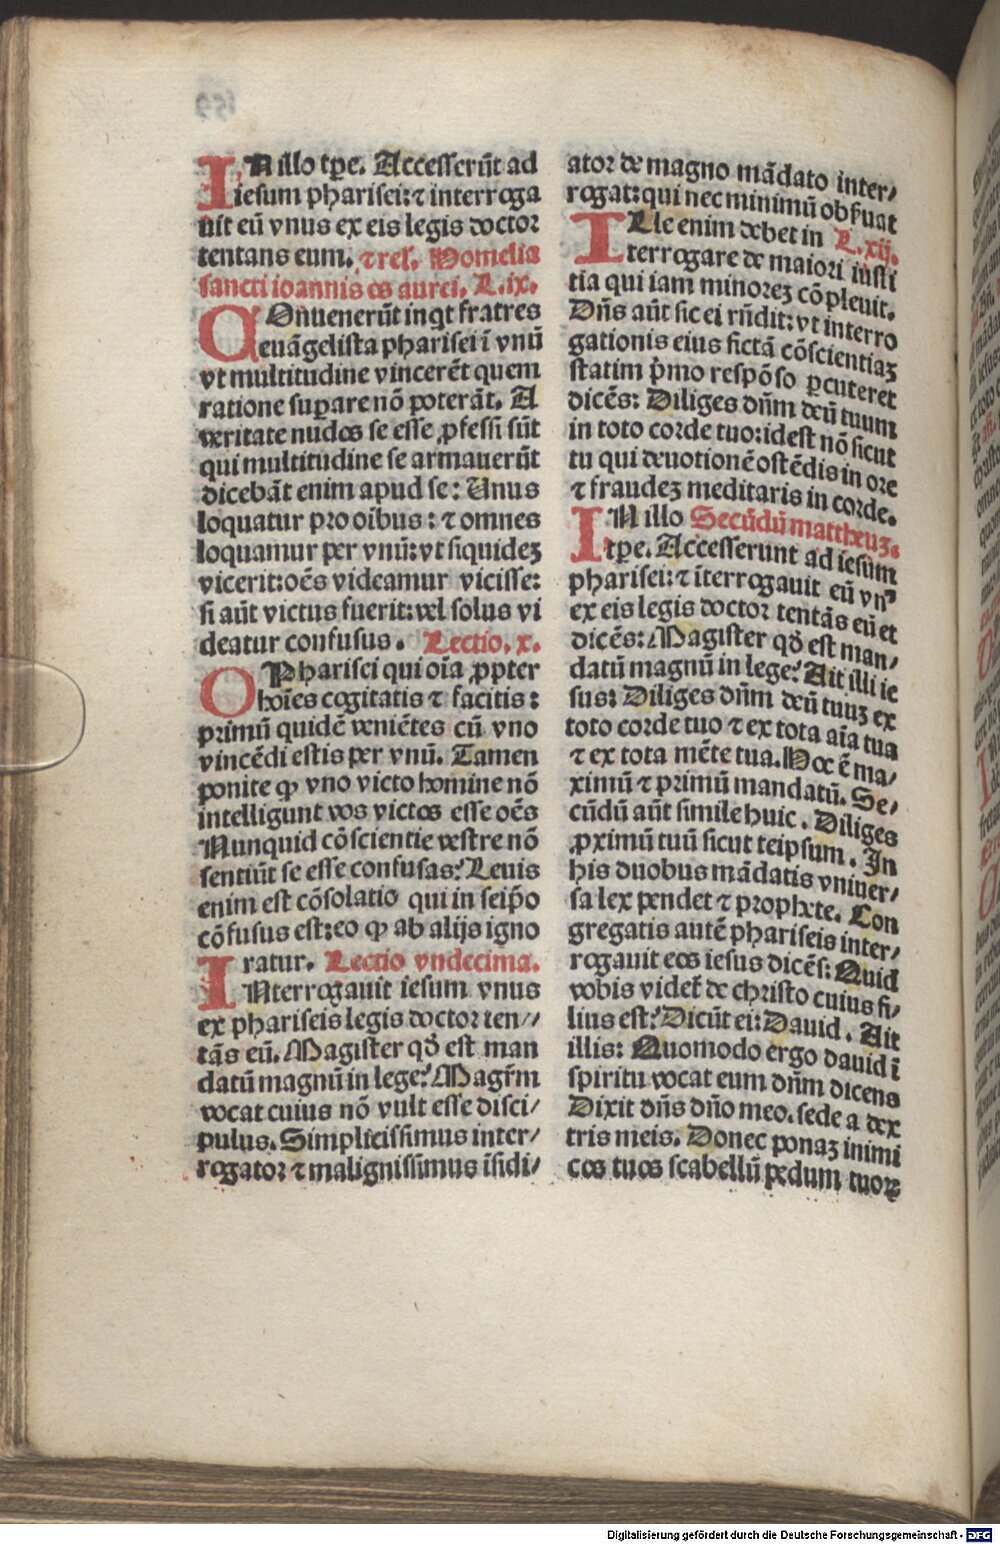 IN illo tꝑe. Accesserũt ad
iesum pharisei: ⁊ interroga
uit eũ vnus ex eis legis doctor
tentans eum. ⁊ rel̃. Homelia
sancti ioannis os aurei. L. ix.
COnuenerũt inqt fratres
euãgelista pharisei ĩ vnũ
vt multitudine vincerẽt quem
ratione suꝑare nõ poterãt. A
veritate nudos se esse ꝓfessi sũt
qui multitudine se armauerũt
dicebãt enim apud se: Unus
loquatur pro oĩbus: ⁊ omnes
loquamur per vnũ: vt siquideꝫ
vicerit: oẽs videamur vicisse:
si aũt victus fuerit: vel solus vi
deatur confusus. Lectio. x.
O Pharisei qui oĩa ꝓpter
hoĩes cogitatis ⁊ facitis:
primũ quidẽ veniẽtes cũ vno
vincẽdi estis per vnũ. Tamen
ponite ꝙ vno victo homine nõ
intelligunt vos victos esse oẽs
Nunquid cõscientie vestre nõ
sentiũt se esse confusas? Leuis
enim est cõsolatio qui in seip̃o
cõfusus est: eo ꝙ ab alijs igno
ratur. Lectio vndecima.
INterrogauit iesum vnus
ex phariseis legis doctor ten⸗
tãs eũ. Magister qð est man
datũ magnũ in lege? Magr̃m
vocat cuius nõ vult esse disci/
pulus. Simplicissimus inter/
rogator ⁊ malignissimus ĩsidi/
ator de magno mãdato inter/
rogat: qui nec minimũ obſuat
ILle enim debet in L. xij.
terrogare de maiori iusti
tia qui iam minoreꝫ cõpleuit.
Dñs aũt sic ei rñdit: vt interro
gationis eius fictã cõscientiaꝫ
statim p̃mo respõso ꝑcuteret
dicẽs: Diliges dñm deũ tuum
in toto corde tuo: idest nõ sicut
tu qui deuotionẽ ostẽdis in ore
⁊ fraudeꝫ meditaris in corde.
IN illo Secũdũ mattheuꝫ.
tꝑe. Accesserunt ad iesum
pharisei: ⁊ ĩterrogauit eũ vnꝰ
ex eis legis doctor tentãs eũ et
dicẽs: Magister qð est man/
datũ magnũ in lege? Ait illi ie
sus: Diliges dñm deũ tuuꝫ ex
toto corde tuo ⁊ ex tota aĩa tua
⁊ ex tota mẽte tua. Hoc ẽ ma/
ximũ ⁊ primũ mandatũ. Se/
cũdũ aũt simile huic. Diliges
ꝓximũ tuũ sicut teipsum. In
his duobus mãdatis vniuer/
sa lex pendet ⁊ prophete. Con
gregatis autẽ phariseis inter/
rogauit eos iesus dicẽs: Quid
vobis videt̃ de christo cuius fi/
lius est? Dicũt ei: Dauid. Ait
illis: Quomodo ergo dauid ĩ
spiritu vocat eum dñm dicens
Dixit dñs dño meo. sede a dex
tris meis. Donec ponaꝫ inimi
cos tuos scabellũ pedum tuoꝝ
Digitalisierung gefördert durch die Deutsche Forschungsgemeinschaft - DFG